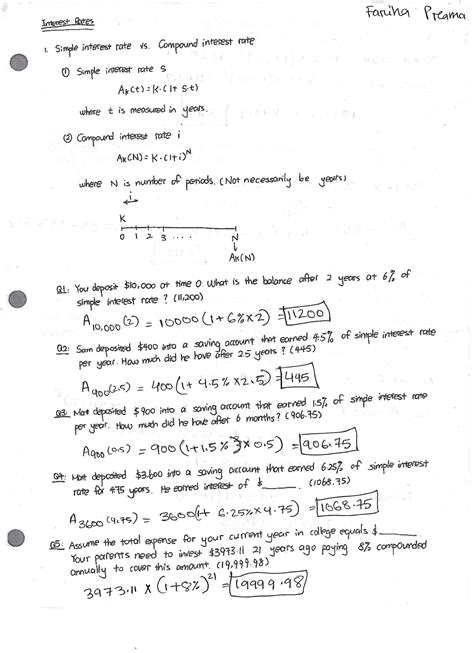 Fariha Preama
Interest Rates
1. Simple interest rate vs. Compound interest rate
① Simple interest rate s
Aₖ(t) = K·(1+ s·t)
where t is measured in years.
② Compound interest rate i
Aₖ(N) = K·(1+i)ᴺ
where N is number of periods. (Not necessarily be years)
i
K
0 1 2 3 .... N
Aₖ(N)
Q1: You deposit $10,000 at time 0. What is the balance after 2 years at 6% of
simple interest rate? (11,200)
A₁₀,₀₀₀(2) = 10000(1+6%×2) = 11200
Q2: Sam deposited $400 into a saving account that earned 4.5% of simple interest rate
per year. How much did he have after 2.5 years? (445)
A₄₀₀(2.5) = 400(1+4.5%×2.5) = 445
Q3: Mat deposited $900 into a saving account that earned 1.5% of simple interest rate
per year. How much did he have after 6 months? (906.75)
A₉₀₀(0.5) = 900(1+1.5%×0.5) = 906.75
Q4: Mat deposited $3,600 into a saving account that earned 6.25% of simple interest
rate for 4.75 years. He earned interest of $______. (1068.75)
A₃₆₀₀(4.75) = 3600(1+ 6.25%×4.75) = 1068.75
Q5: Assume the total expense for your current year in college equals $______.
Your parents need to invest $3973.11 21 years ago paying 8% compounded
annually to cover this amount. (19,999.98)
3973.11 × (1+8%)²¹ = 19999.98